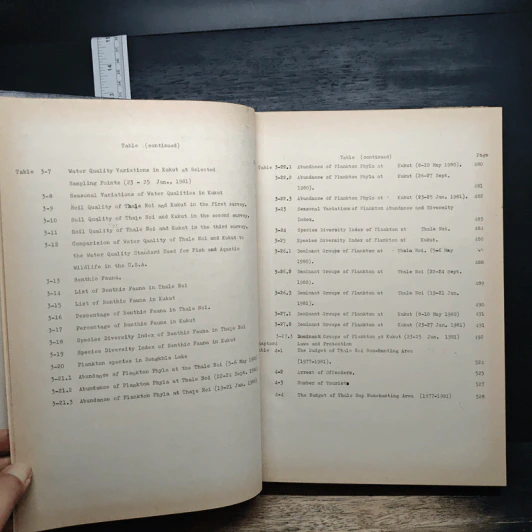 Table (continued)
Table 3-7 Water Quality Variations in Kukut at Selected
Sampling Points (23 - 25 Jan., 1981)
3-8 Seasonal Variations of Water Qualities in Kukut
3-9 Soil Quality of Thale Noi and Kukut in the first survey.
3-10 Soil Quality of Thale Noi and Kukut in the second survey.
3-11 Soil Quality of Thale Noi and Kukut in the third survey.
3-12 Comparision of Water Quality of Thale Noi and Kukut to
the Water Quality Standard Need for Fish and Aquatic
Wildlife in the U.S.A.
3-13 Benthic Fauna.
3-14 List of Benthic Fauna in Thale Noi
3-15 List of Benthic Fauna in Kukut
3-16 Percentage of Benthic Fauna in Thale Noi.
3-17 Percentage of Benthic Fauna in Kukut
3-18 Species Diversity Index of Benthic Fauna in Thale Noi
3-19 Species Diversity Index of Benthic Fauna in Kukut
3-20 Plankton species in Songkhla Lake
3-21.1 Abundance of Plankton Phyla at the Thale Noi (5-6 May 1980)
3-21.2 Abundance of Plankton Phyla at Thale Noi (22-24 Sept. 1980)
3-21.3 Abundance of Plankton Phyla at Thale Noi (13-21 Jan. 1981)
Table (continued)
Page
Table 3-22.1 Abundance of Plankton Phyla at Kukut (8-10 May 1980). 480
3-22.2 Abundance of Plankton Phyla at Kukut Sept.
1980). 481
3-22.3 Abundance of Plankton Phyla at Kukut (23-25 Jan. 1981). 482
3-23 Seasonal Variation of Plankton Abundance and Diversity
Index. 483
3-24 Species Diversity Index of Plankton at Thale Noi. 484
3-25 Species Diversity Index of Plankton at Kukut.
3-26.1 Dominant Groups of Plankton at Thale Noi, (5-6 May
1980).
3-26.2 Dominant Groups of Plankton at Thale Noi (22-24 Sept.
1980).
3-26.3 Dominant Groups of Plankton at Thale Noi (13-21 Jan.
1981).
3-27.1 Dominant Groups of Plankton at Kukut (8-10 May 1980) 491
3-27.2 Dominant Groups of Plankton at Kukut 1981) 491
3-27.3 Dominant Groups of Plankton at Kukut (23-25 Jan. 1981)
Laws and Protection
4-1 The Budget of Thale Noi Nonehunting Area
(1977-1981). 522
4-2 Arrest of Offendeds. 523
4-3 Number of Tourists 523
4-4 The Budget of Thale Nonehunting Area. (1977-1981) 528